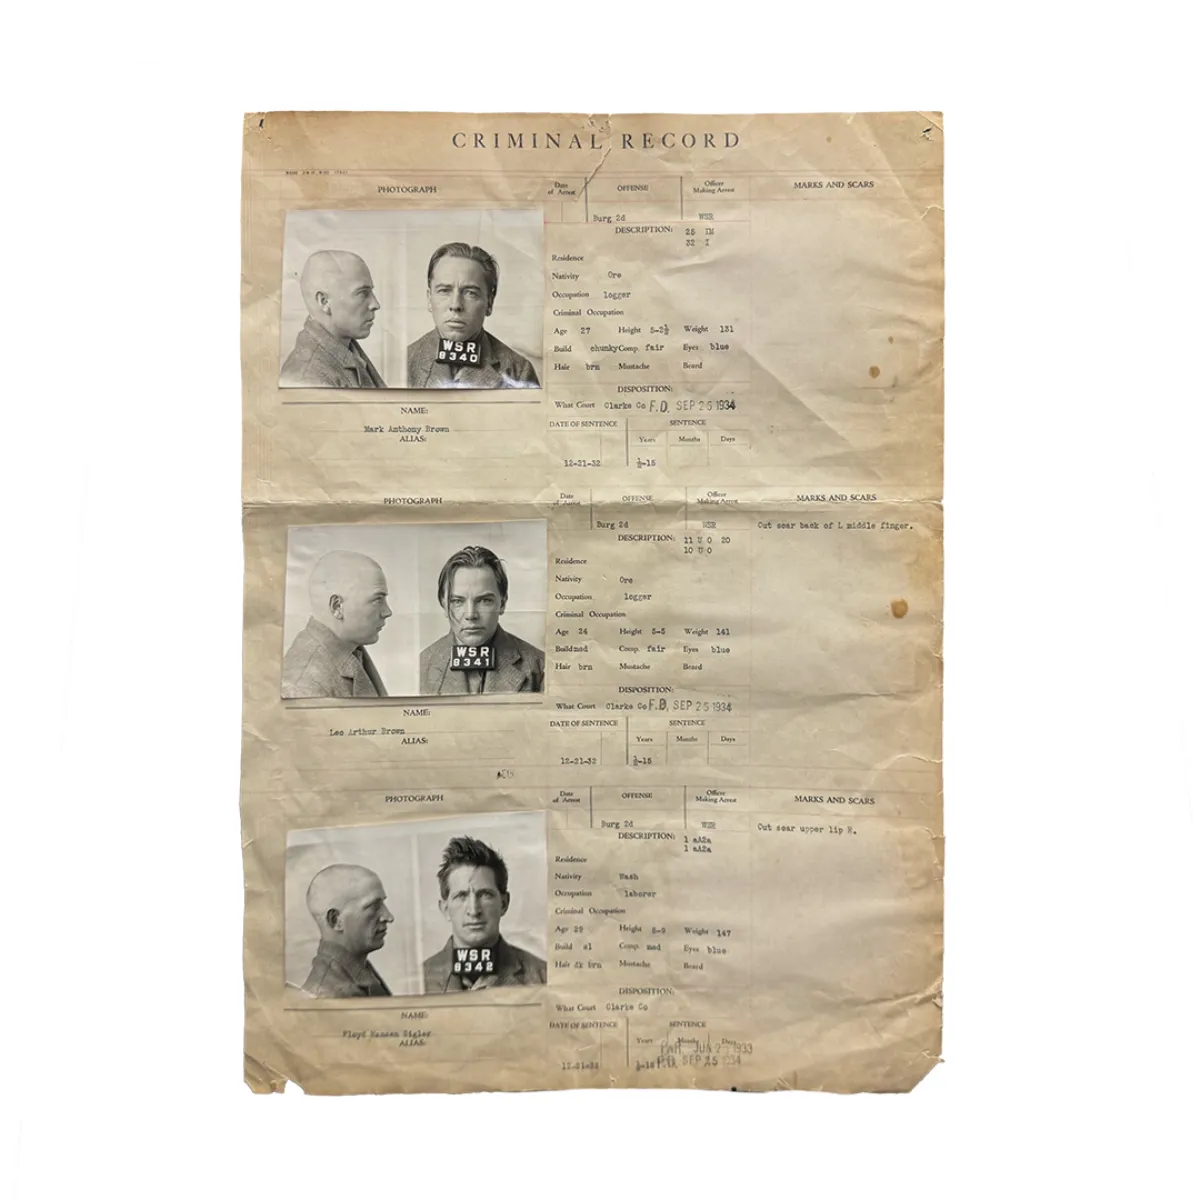 CRIMINAL RECORD
PHOTOGRAPH
Date of Arrest
OFFENSE
Officer Making Arrest
MARKS AND SCARS
Burg 2d
WSR
DESCRIPTION: 25 IM
32 I
Residence
Nativity Ore
Occupation logger
Criminal Occupation
Age 27 Height 5-2½ Weight 131
Build chunky Comp. fair Eyes blue
Hair brn Mustache Beard
WSR
8340
DISPOSITION:
What Court Clarke Co F.D. SEP 25 1934
NAME:
Mark Anthony Brown
ALIAS:
DATE OF SENTENCE
SENTENCE
Years Months Days
12-21-32 ½-15
PHOTOGRAPH
Date of Arrest
OFFENSE
Officer Making Arrest
MARKS AND SCARS
Burg 2d
WSR
Cut scar back of L middle finger.
DESCRIPTION: 11 U 0 20
10 U 0
Residence
Nativity Ore
Occupation logger
Criminal Occupation
Age 24 Height 5-5 Weight 141
Build med Comp. fair Eyes blue
Hair brn Mustache Beard
WSR
8341
DISPOSITION:
What Court Clarke Co F.D. SEP 25 1934
NAME:
Leo Arthur Brown
ALIAS:
DATE OF SENTENCE
SENTENCE
Years Months Days
12-21-32 ½-15
PHOTOGRAPH
Date of Arrest
OFFENSE
Officer Making Arrest
MARKS AND SCARS
Burg 2d
WSR
Cut scar upper lip R.
DESCRIPTION: 1 aA2a
1 aA2a
Residence
Nativity Wash
Occupation laborer
Criminal Occupation
Age 29 Height 5-9 Weight 147
Build sl Comp. med Eyes blue
Hair dk brn Mustache Beard
WSR
8342
DISPOSITION:
What Court Clarke Co
NAME:
Floyd Hansen Sigler
ALIAS:
DATE OF SENTENCE
SENTENCE
Years Months Days
JUN 1933
SEP 25 1934